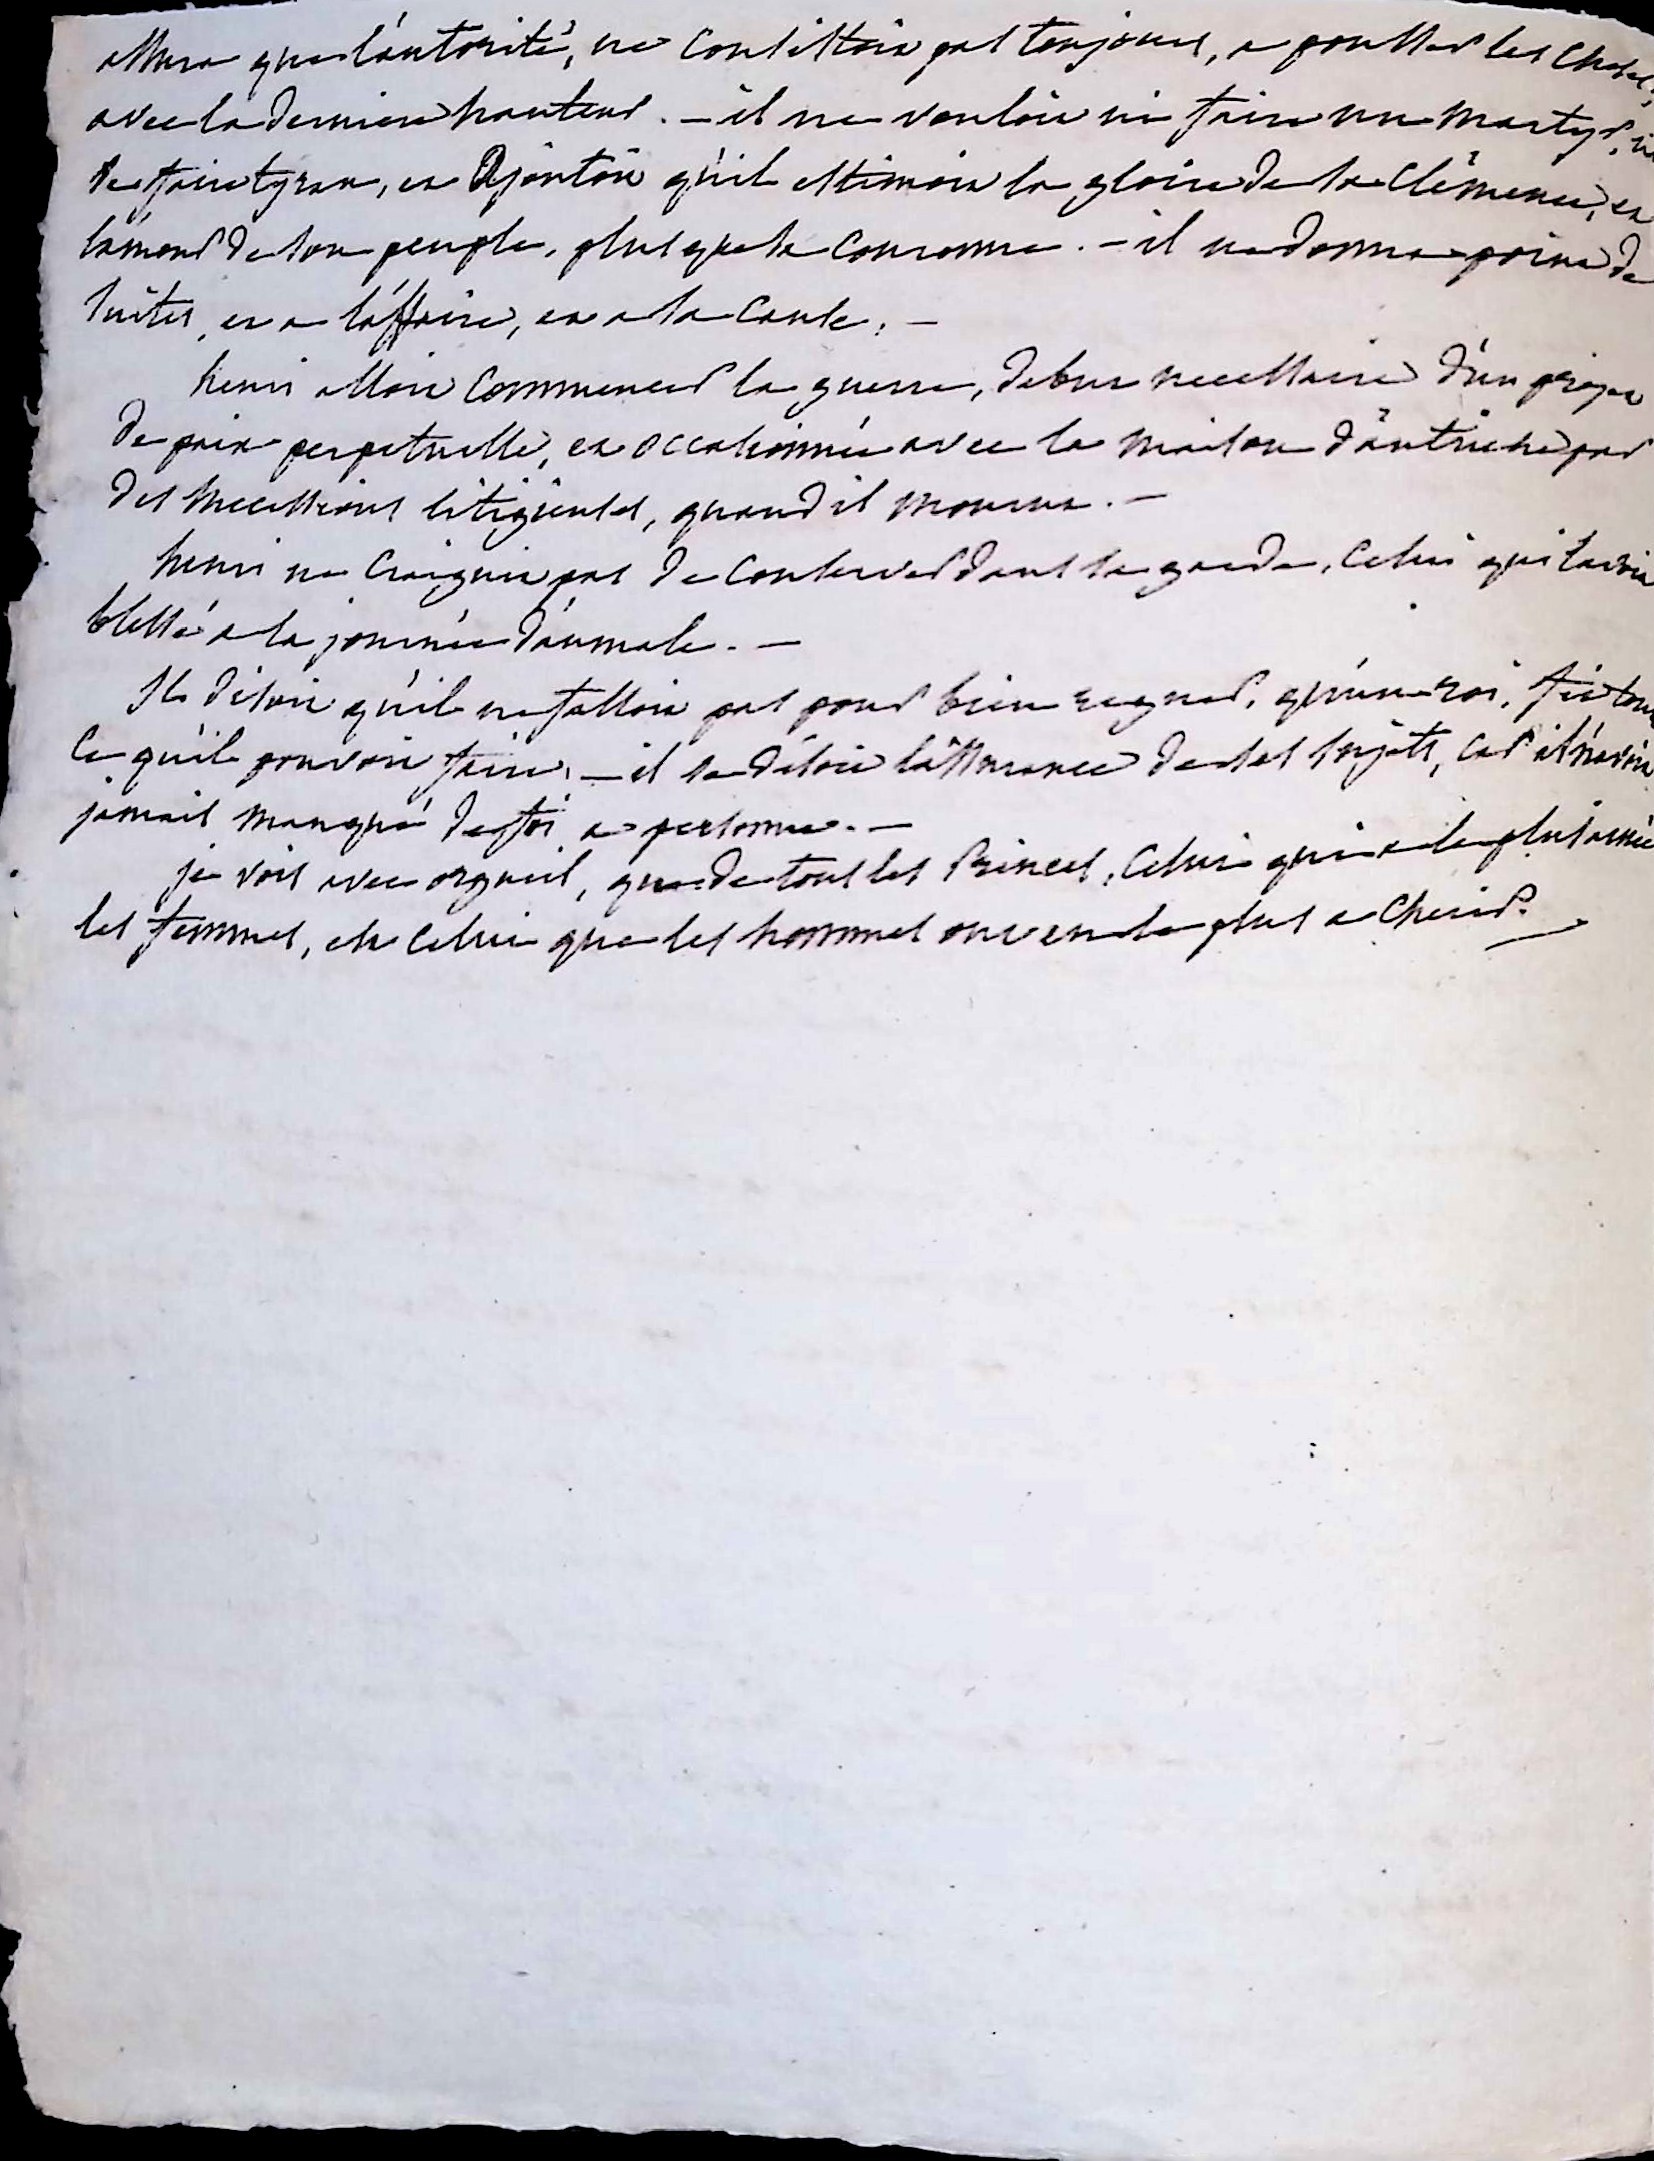 assura que l'autorité, ne consistoit pas toujours, a pousser les choses,
avec la derniere hauteur. — il ne vouloit ni faire un martyr, ni
se faire tyran, et Ajoutoit qu'il estimoit la gloire de sa clémence, et
l'amour de son peuple, plus que sa couronne. — il ne donna point de
suites, et a l'affaire, et a la cause. —
henri alloit commencer la guerre, debut necessaire d'un projet
de paix perpetuelle, et occasionnée avec la maison d'autriche par
des successions litigieuses, quand il mourut. —
henri ne craignit pas de conserver dans sa garde, celui qui l'avoit
blessé a la journée d'aumale. —
Il disoit qu'il ne falloit pas pour bien regner, qu'un roi, fit tout
ce qu'il pouvoit faire, — il se disoit l'assurance de ses sujets, car il n'avoit
jamais manqué de foi a personne. —
je vois avec orgueil, que de tous les Princes, celui qui a le plus aimé
les femmes, est celui que les hommes ont eu le plus a cherir.